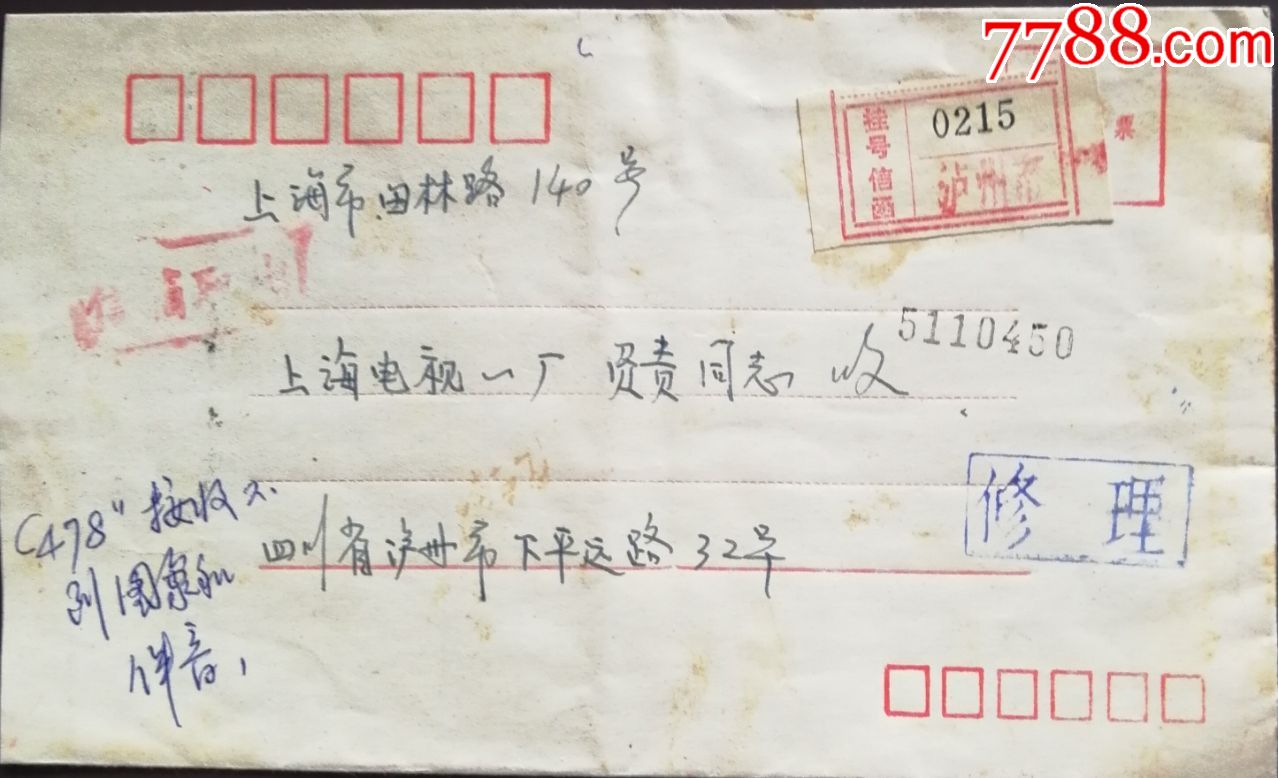 7788.com
票
挂号信函
0215
泸州
上海市田林路140号
上海电视一厂 贤责同志 收
5110450
修理
四川省泸州市下平远路32号
C478"接收不
到图象和
伴音,